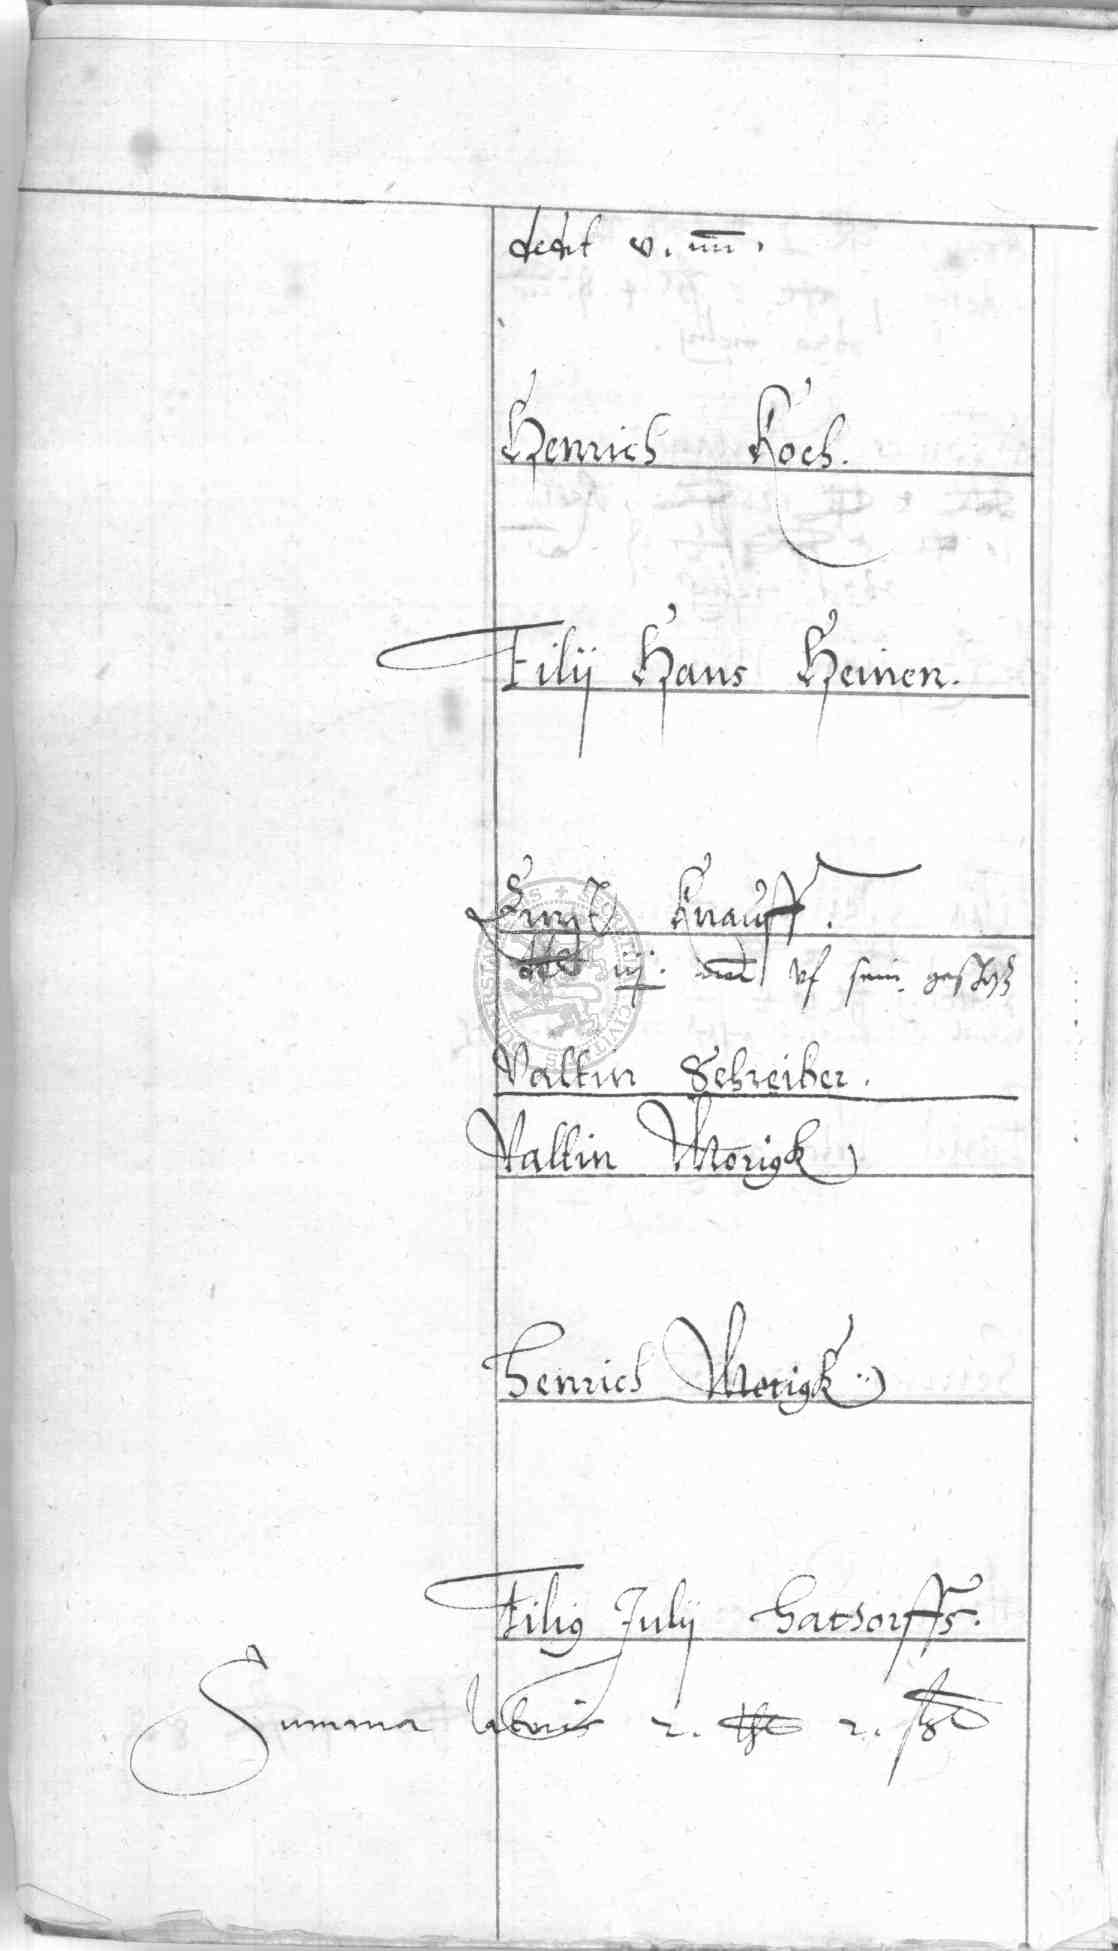 dedit v. iiii.
Henrich Koch.
Filij Hans Heinen.
Curtt Knauff.
dedt iij. uf sein
Valtin Schreiber.
Valtin Morigk
Henrich Morigk
Filij Julij Hatsorffs.
Summa lateris 2. 2.